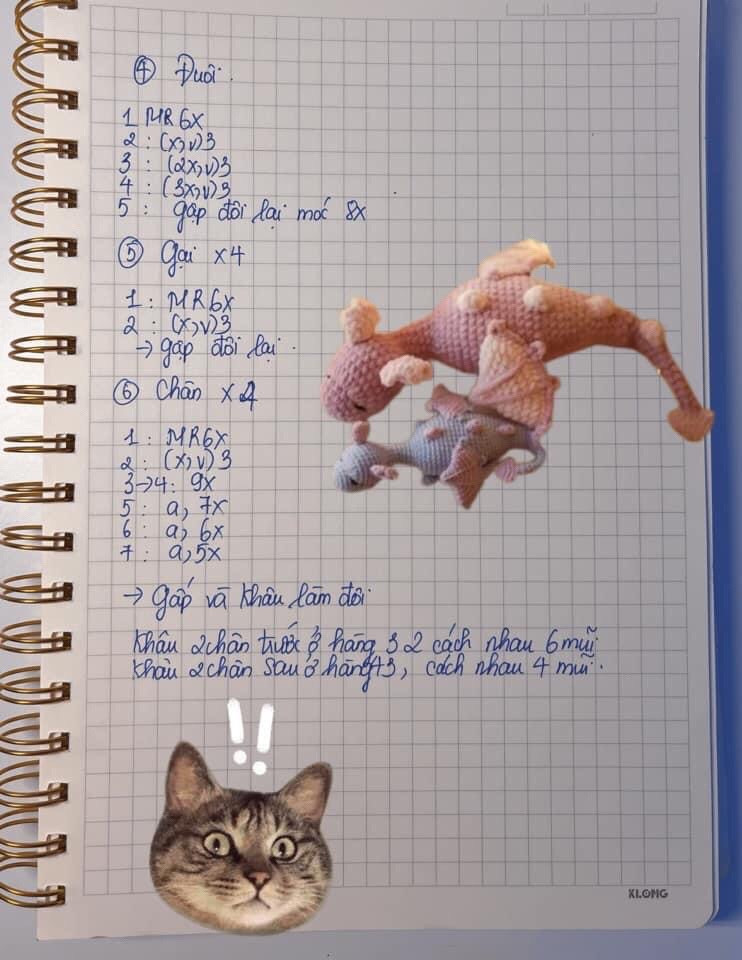 ④ Đuôi.
1 MR 6x
2 : (x, v) 3
3 : (2x, v) 3
4 : (3x, v) 3
5 : gập đôi lại móc 8x
⑤ Gai x4
1 : MR 6x
2 : (x, v) 3
→ gập đôi lại.
⑥ Chân x 4
1 : MR 6x
2 : (x, v) 3
3→4 : 9x
5 : a, 7x
6 : a, 6x
7 : a, 5x
→ Gấp và khâu làm đôi
Khâu 2 chân trước ở hàng 32 cách nhau 6 mũi
Khâu 2 chân sau ở hàng 43, cách nhau 4 mũi.
!!
KLONG